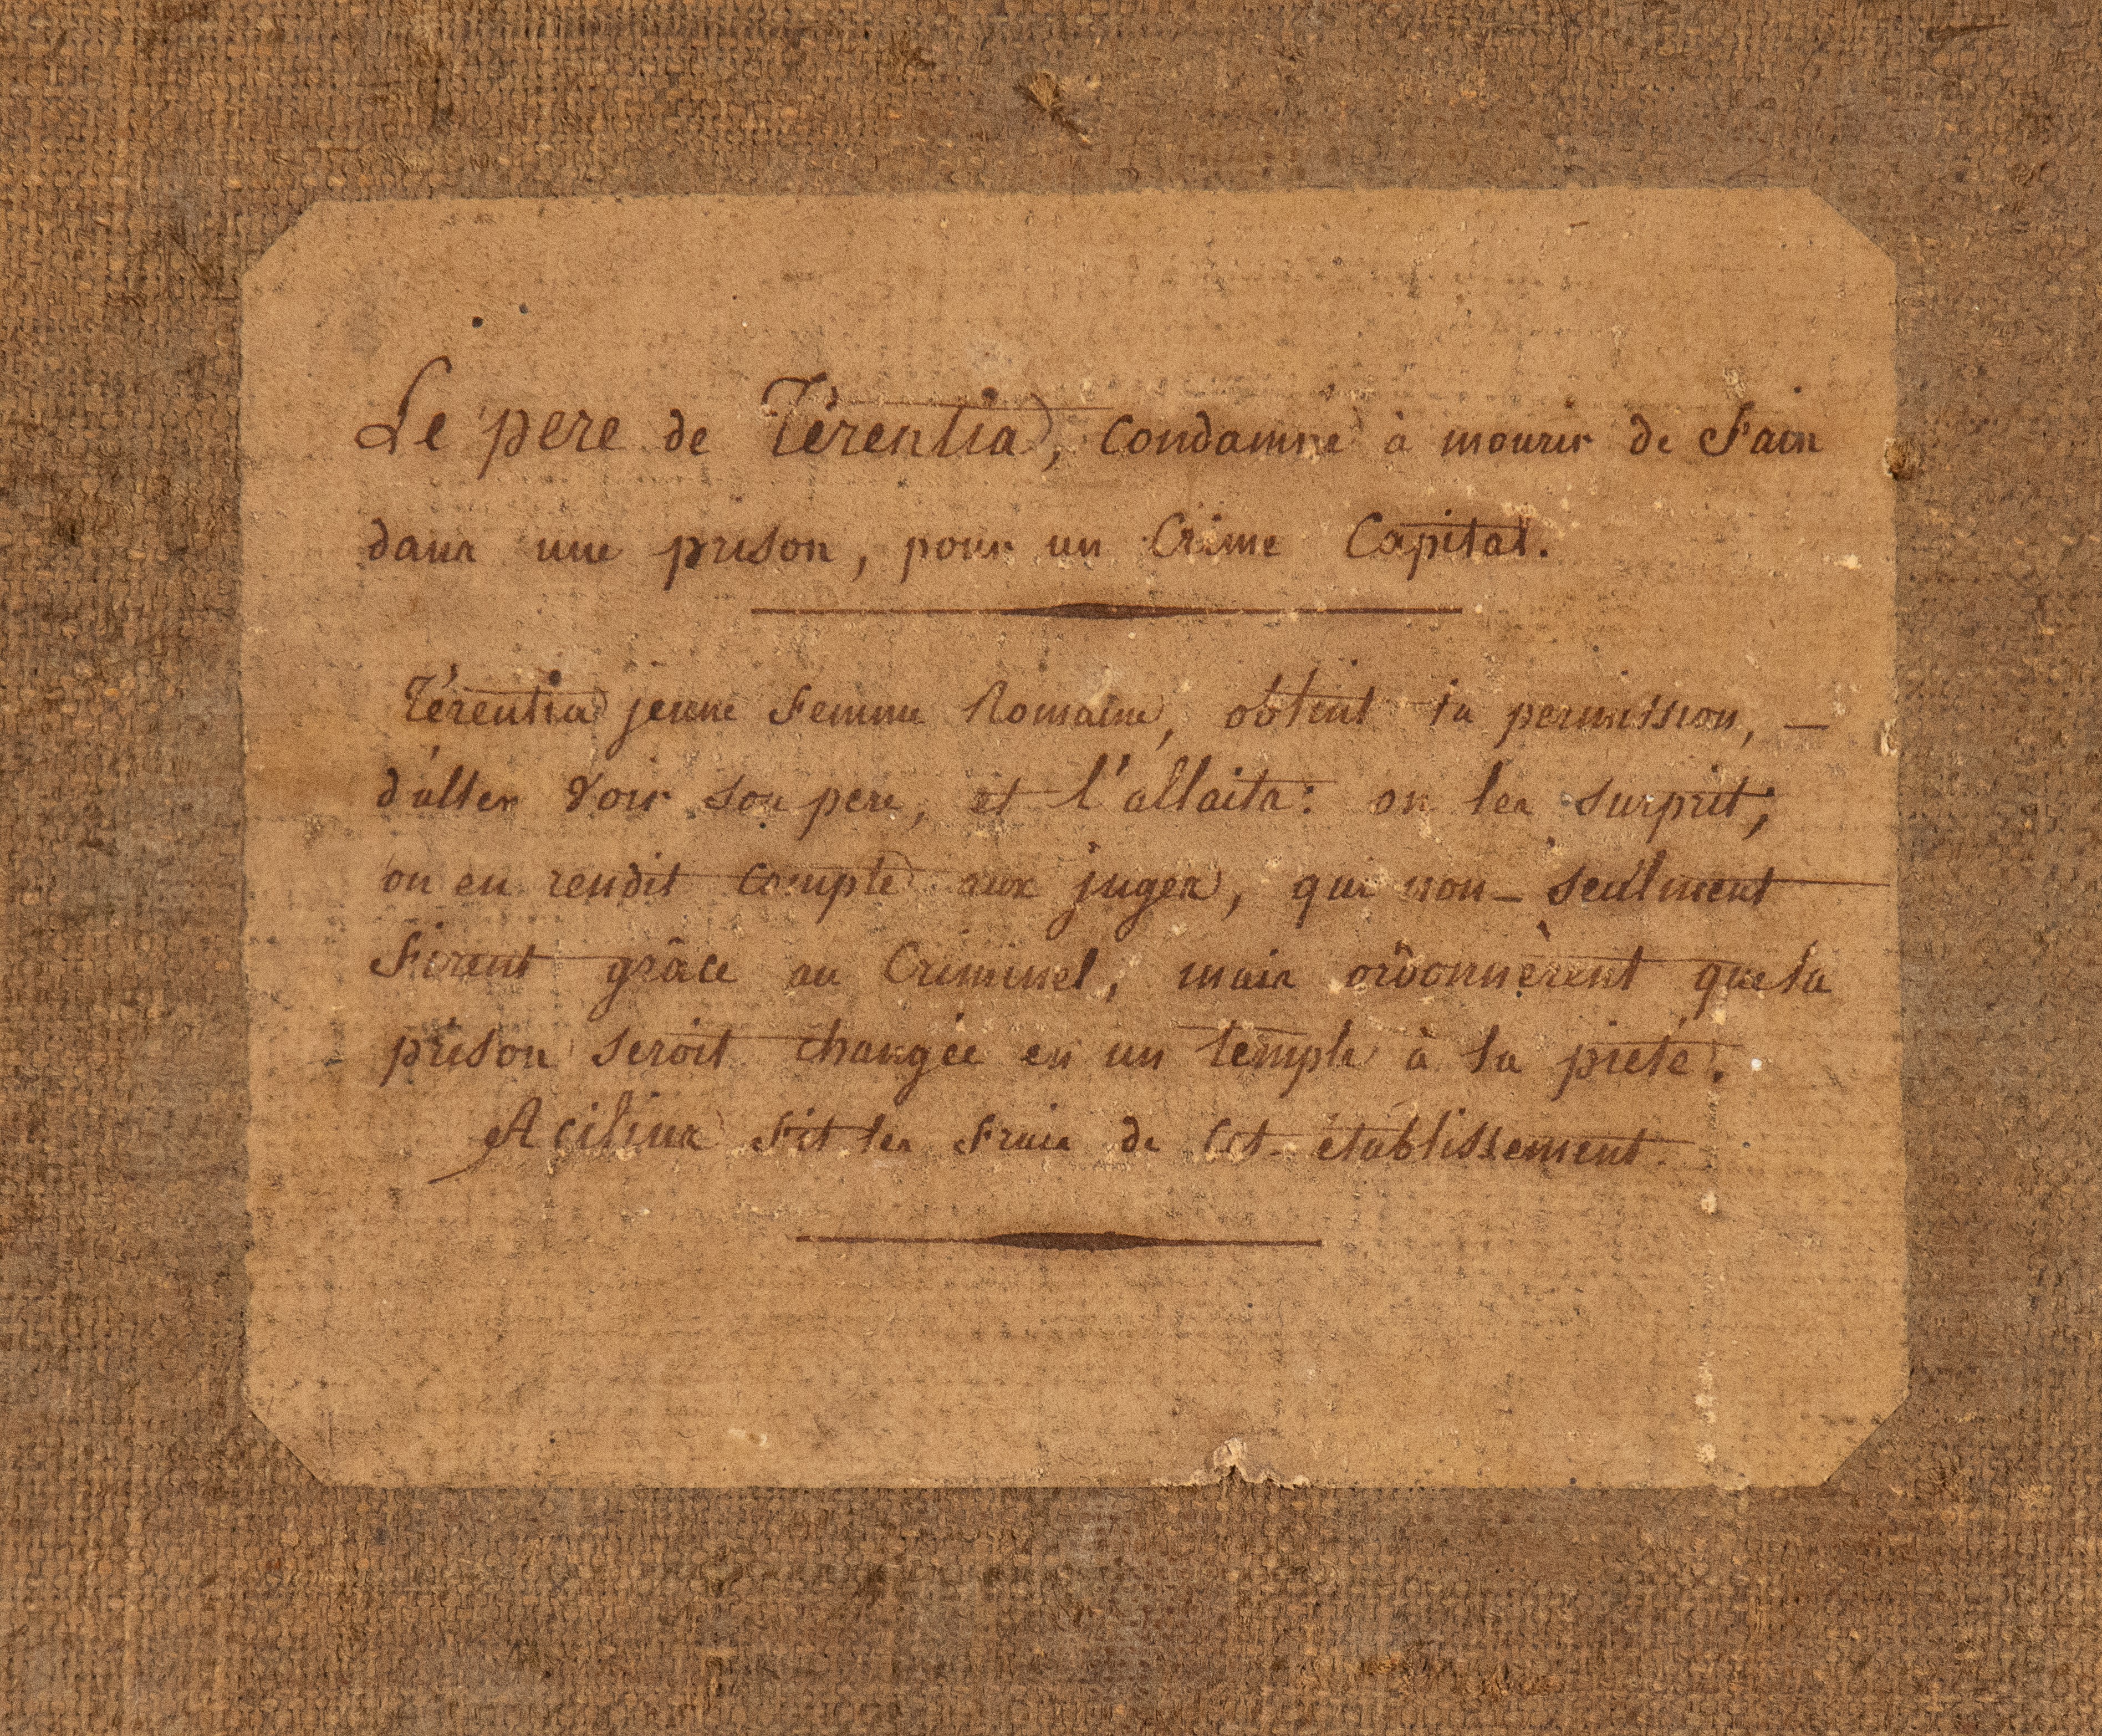 Le pere de Térentia, condamné à mourir de Faim
dans une prison, pour un Crime Capital.
Térentia jeune Femme Romaine, obtint la permission, —
d'aller voir son pere, et l'allaita: on les surprit;
on en rendit compte aux juges, qui non-seulment
Firent grâce au Criminel, mais ordonnèrent que la
prison seroit changée en un temple à la pieté.
Acilius fit les Frais de cet établissement.